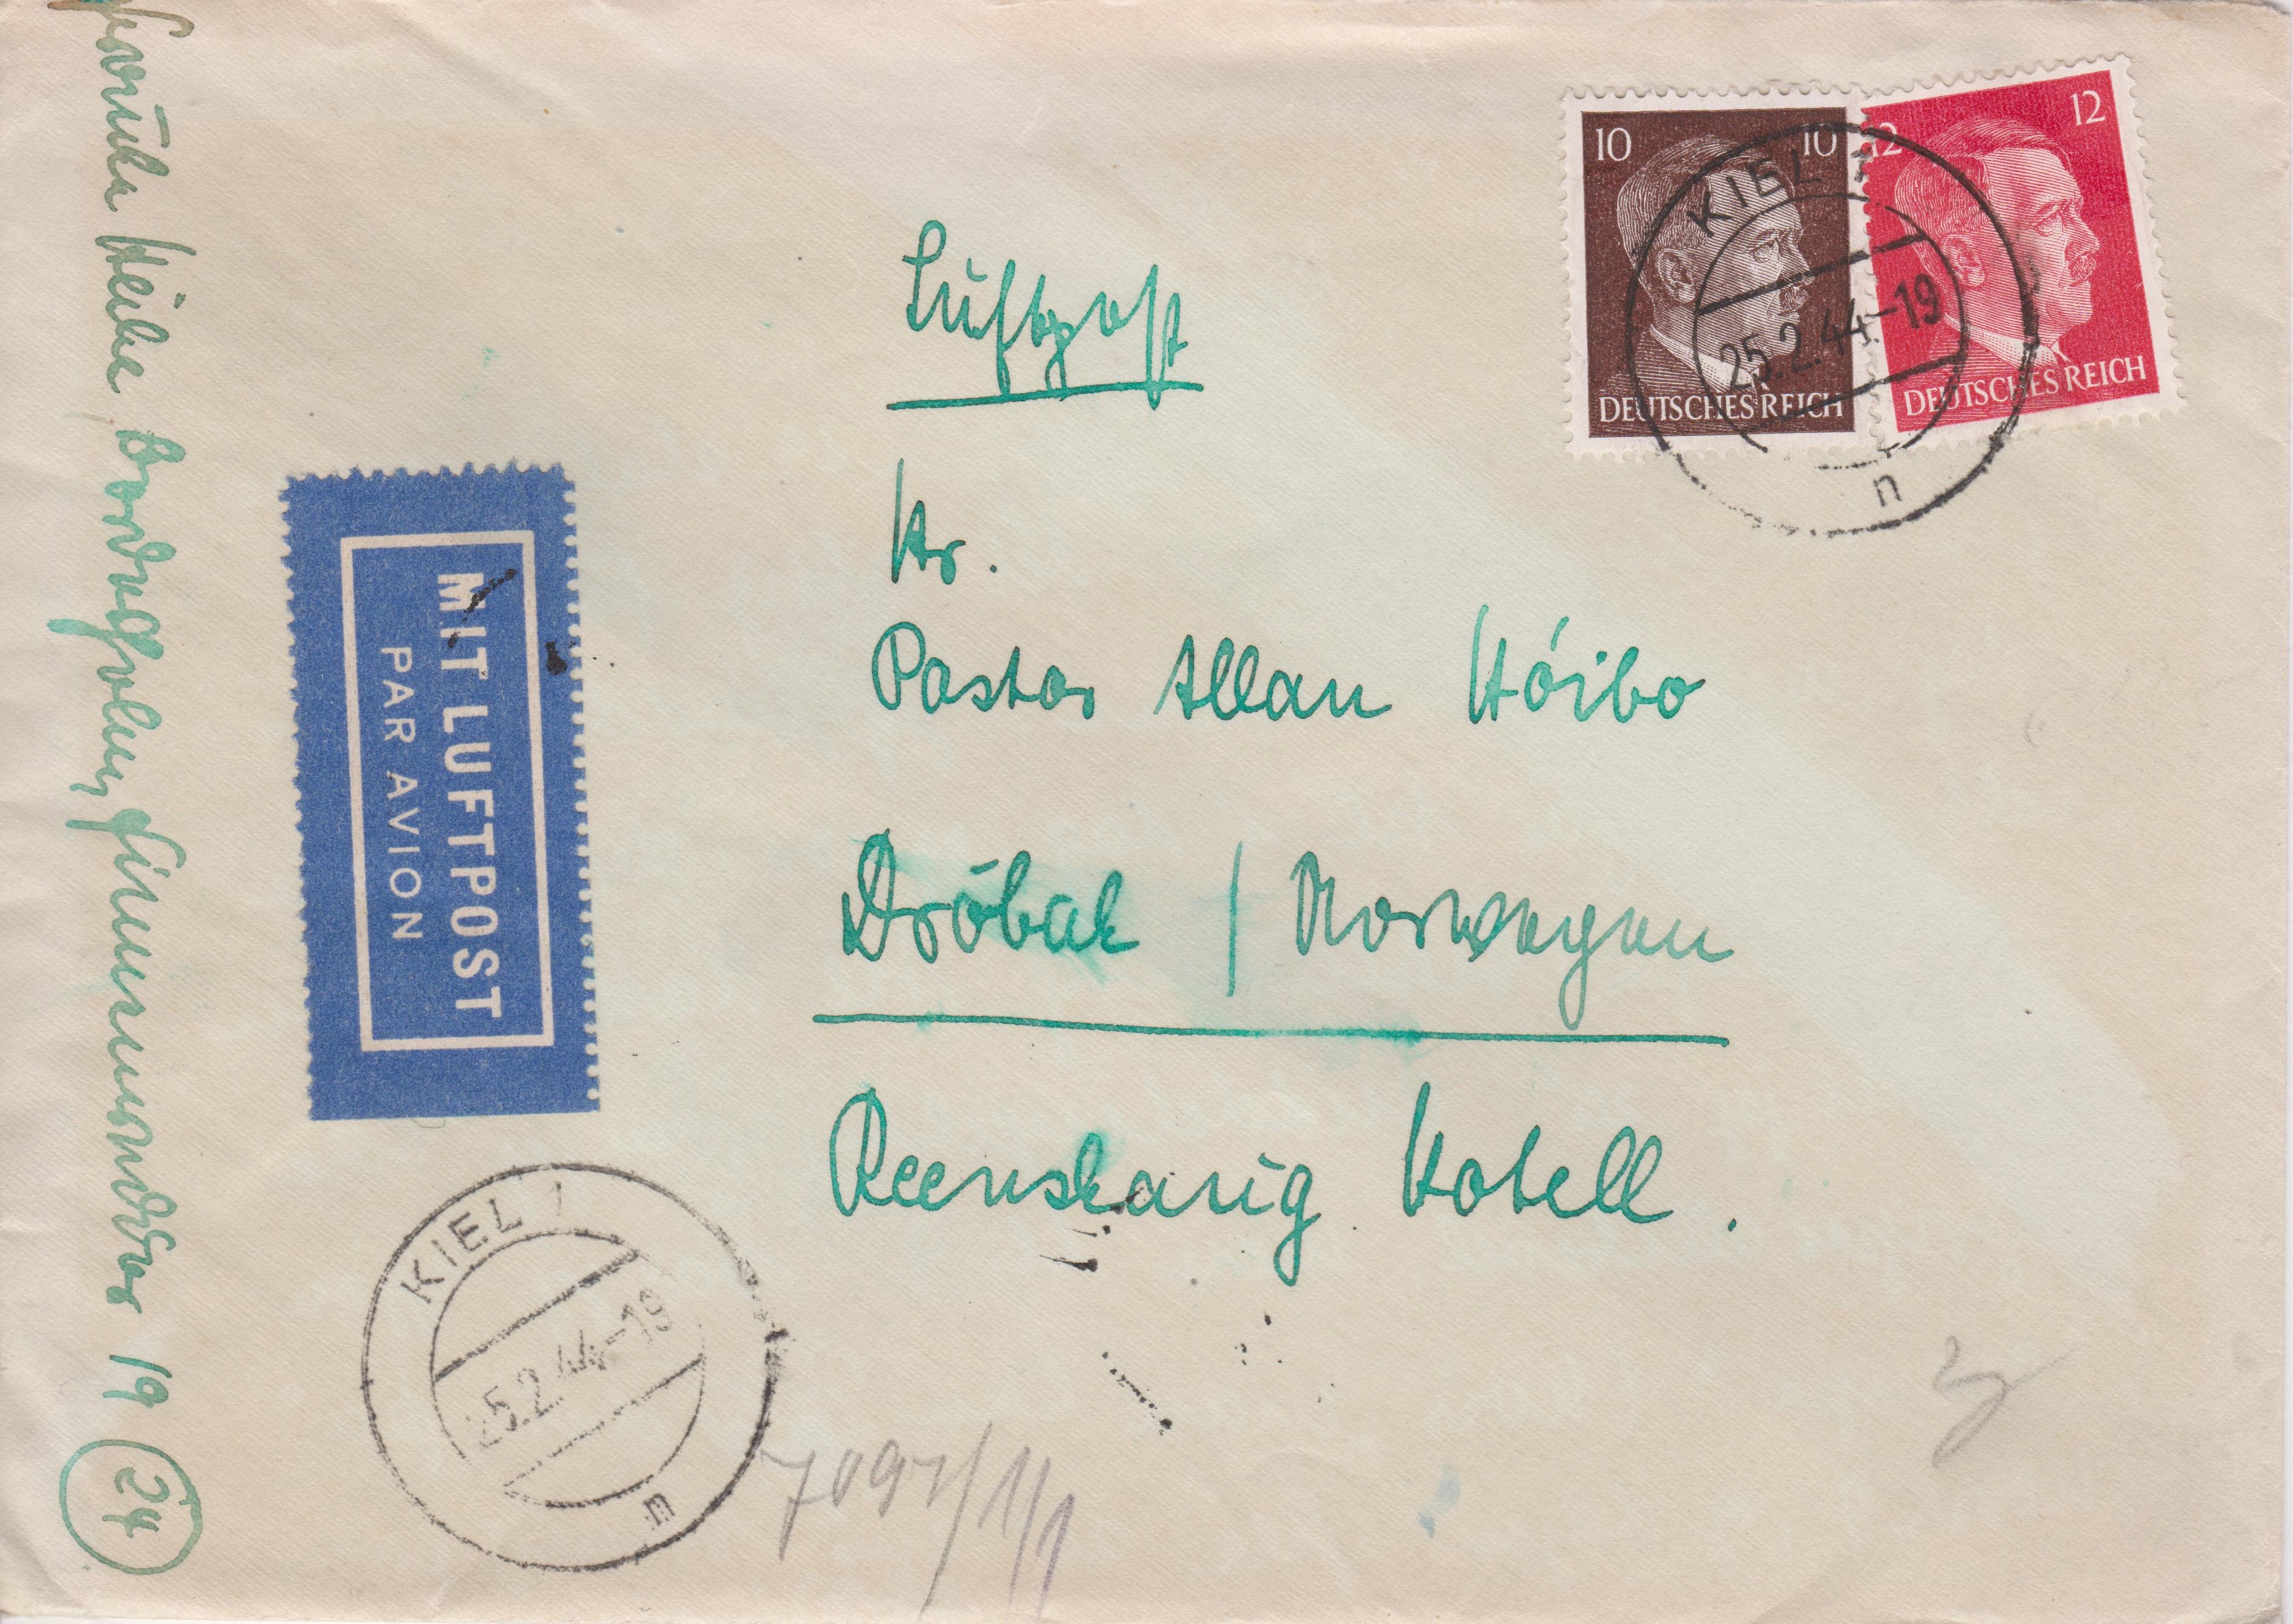 Luftpost
Hr.
Pastor Allan Hóibo
Dróbak / Norwegen
Reenskaug Hotell.
MIT LUFTPOST
PAR AVION
10 10
DEUTSCHES REICH
12 12
DEUTSCHES REICH
KIEL 1
25.2.44.-19
n
KIEL 1
25.2.44.-19
n
Heike, Bordesholm, 19 (24)